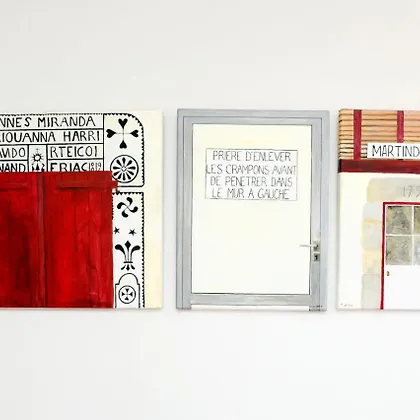 NNES MIRANDA
IOUANNA HARRI
AVDO RTEICO!
NAND ERIAC 1819
PRIERE D'ENLEVER
LES CRAMPONS AVANT
DE PENETRER DANS
LE MUR A GAUCHE
MARTIND